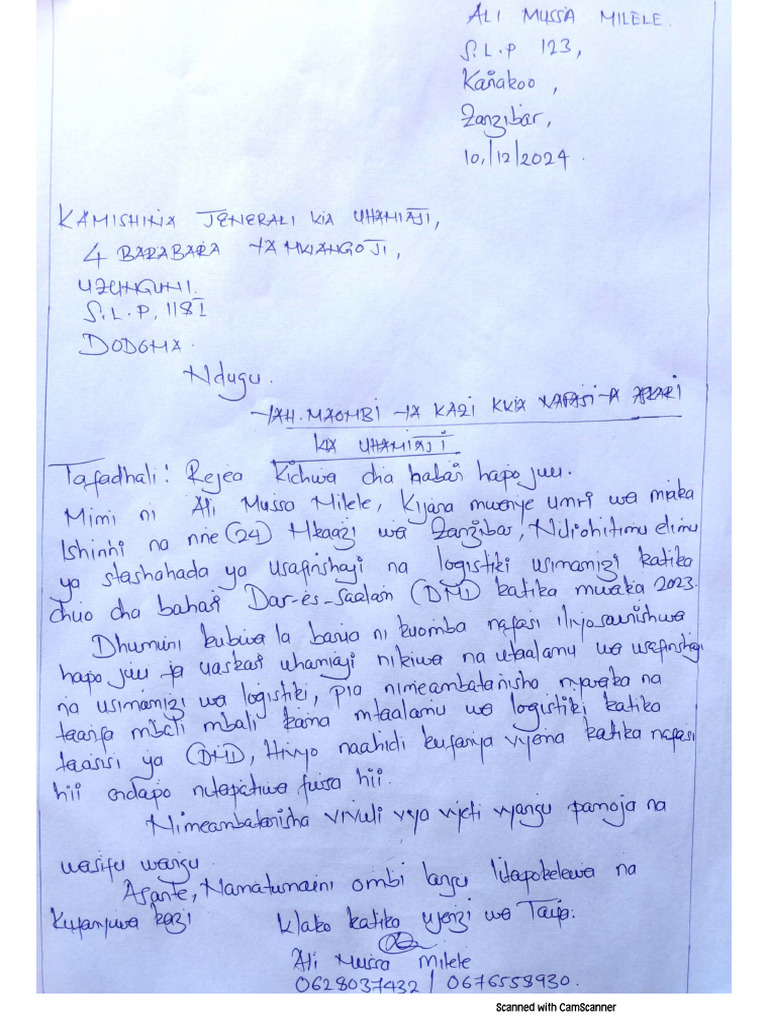 ALI MUSSA MILELE.
S.L.P 123,
Kañakoo,
Zanzibar,
10/12/2024.
KAMISHINA JENERALI WA UHAMIAJI,
4 BARABARA YA MWANGOJI,
UZUNGUNI.
S.L.P, 1181
DODOMA.
Ndugu.
YAH. MAOMBI YA KAZI KWA NAFASI YA ASKARI
WA UHAMIAJI
Tafadhali! Rejea kichwa cha habari hapo juu.
Mimi ni Ali Mussa Milele, Kijana mwenye umri wa miaka
Ishirihi na nne (24) Mkaazi wa Zanzibar, Ndiohitimu elimu
ya stashahada ya usafirishaji na logistiki usimamizi katika
chuo cha bahari Dar-es-saalam (DMI) katika mwaka 2023.
Dhumini kubwa la barua ni kuomba nafasi iliyosainishwa
hapo juu ya uaskari uhamiaji nikiwa na utaalamu wa usafirishaji
na usimamizi wa logistiki, pia nimeambatanisha nyaraka na
taarifa mbali mbali kama mtaalamu wa logistiki katika
taasisi ya (DMI), Hivyo naahidi kufanya vyema katika nafasi
hii endapo nitapatiwa fursa hii.
Nimeambatanisha vivuli vya vyeti vyangu pamoja na
wasifu wangu.
Asante, Namatumaini ombi langu litapokelewa na
kufanyiwa kazi Wako katika ujenzi wa Taifa.
Ali Mussa Milele
0628037432 / 0676558930.
Scanned with CamScanner